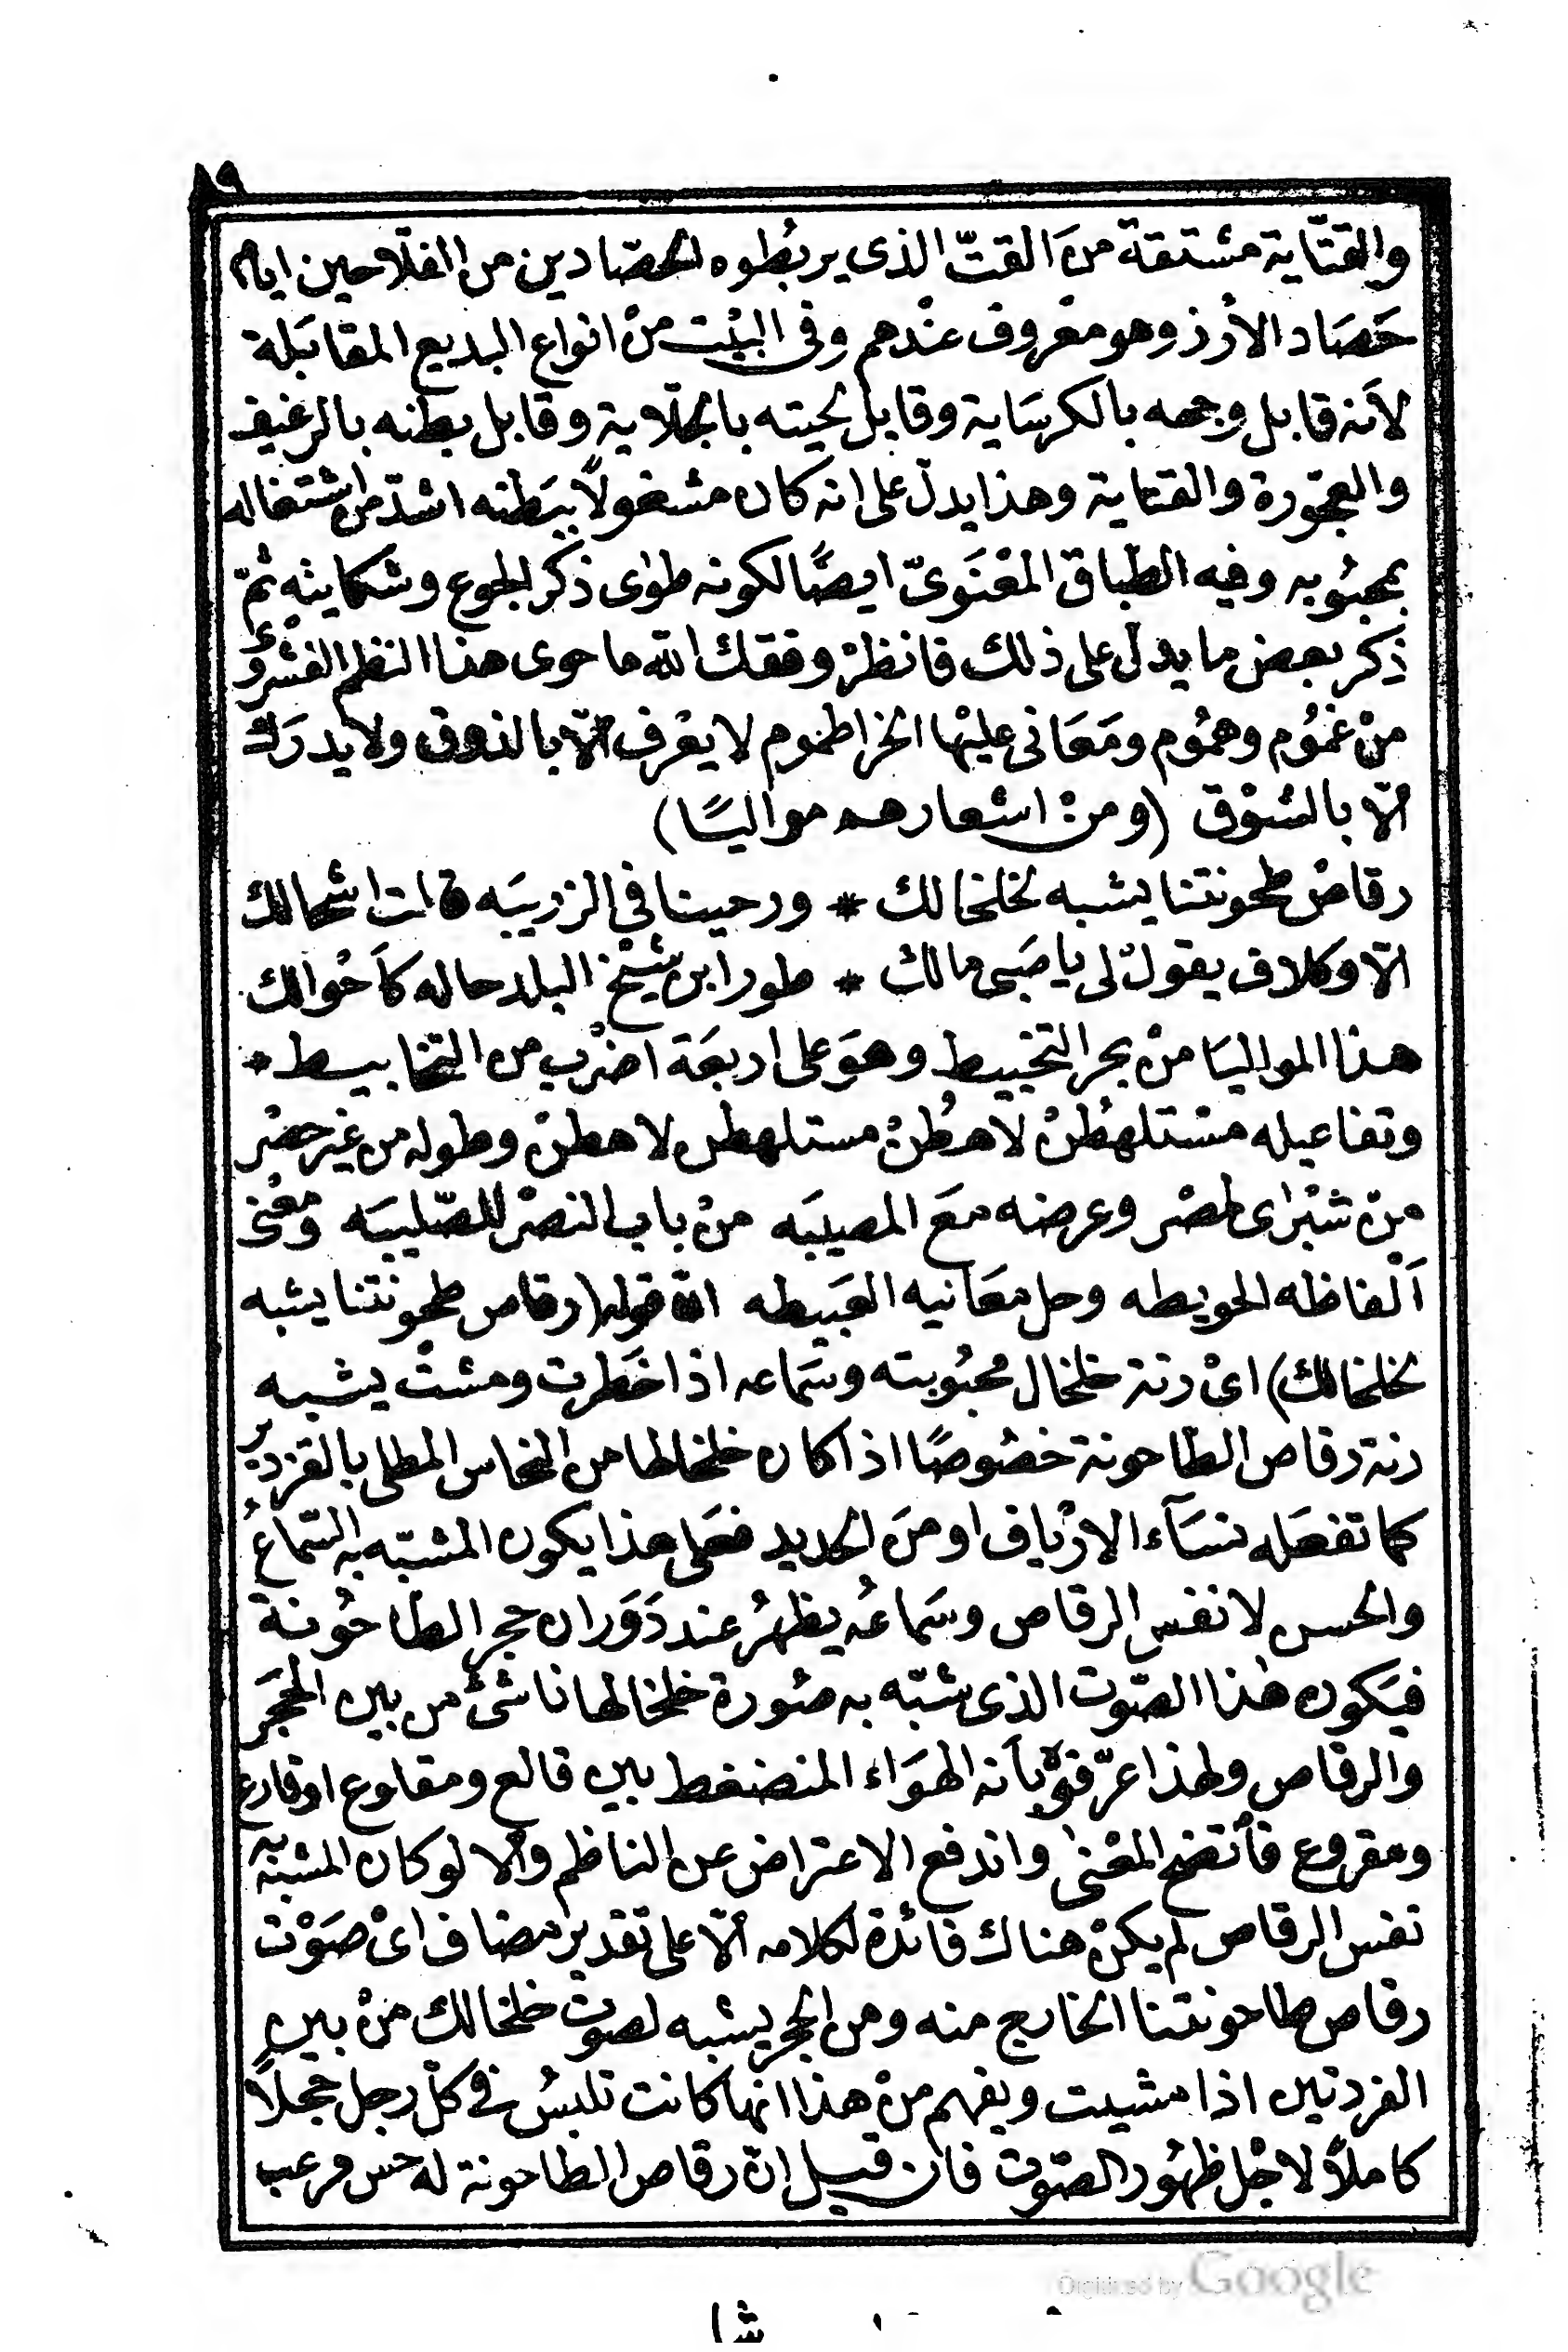 ٨٩
والقتّاية مشتقة منَ القتّ الذى يربُطوه الحصّادين من الفلّاحين ايام
حَصَاد الأرُز وهو معْروف عنْدهم وفى البيْت منْ انواع البديع المقابَلة
لأنه قابل وجهه بالكرسَاية وقابل لحيته بالجلّاية وقابل بطنه بالرغيف
والعجّورة والقتاية وهذا يدلّ على انه كان مشغولًا ببَطْنه اشدّ من اشتغاله
بمحبُوبه وفيه الطّباق المعْنَوىّ ايضًا لكونه طوٰى ذكر الجوع وشكايته ثمّ
ذِكر بعض ما يدلّ على ذلك فانظرْ وفقك الله ما حوى هذا النظم الفشْروى
منْ غمُوم وهمُوم ومَعَانى عليْها الخراطموم لا يعْرف الّا بالذوق ولا يدرَك
الّا بالشوْق (ومنْ اشعارهم مواليًا)
رقاصْ طحونتنا يشبه لخلخالك * ورحينا فى الزريبَه قامت اشمالك
الّا وكلاف يقولْ لى يا صَبى مالك * طور ابن شيْخ البلد حاله كأحْوالك
هذا المواليَا منْ بحر التخييط وهوَ على اربعَة اضْرب من التخابيط *
وتفاعيله مسْتلهطُنْ لاهطُنْ مستلهطن لاهطنْ وطوله من غير حصْر
منْ شبْرٰى لمصْر وعرضه معَ المصيبَه منْ باب النصْر للصّليبَه ومعْنى
ألْفاظه الحويطه وحل معَانيه العَبيطه انّ قوله (رقاص طحونتنا يشبه
لخلخالك) اىْ رنة خلخال محبُوبته وسَماعه اذا خَطرت ومشتْ يشبه
رنة رقاص الطّاحونة خصُوصًا اذا كان خلخالها من النحاس المطلى بالقزدير
كما تفعَله نسَآء الارْياف او منَ الحديد فعَلى هذا يكون المشبّه به السّماعُ
والحسن لا نفس الرقاص وسَماعُه يظهرُ عند دَوَران حجر الطّاحُونة
فيَكون هٰذا الصّوت الذى شبّه به صُورة خلخالها ناشئ من بين الحجَر
والرقاص ولهذا عرّفوْه بأنه الهوَاء المنضغط بين قالع ومقلوع او قارع
ومقروع فأتضح المعْنى واندفع الاعتراض عن الناظم والّا لو كان المشبّه به
نفس الرقاص لم يكنْ هناك فائدة لكلامه الّا على تقدير مضاف اىْ صَوْت
رقاص طاحونتنا الخارج منه ومن الحجر يشبه لصوت خلخالك منْ بين
الفردتين اذا مشيت ويفهم منْ هذا انها كانت تلبسُ فى كلّ رجل حجلًا
كاملاً لاجْل ظهُور الصّوت فان قيل انّ رقاص الطاحونة له حس مرعب
شا
Digitized by Google